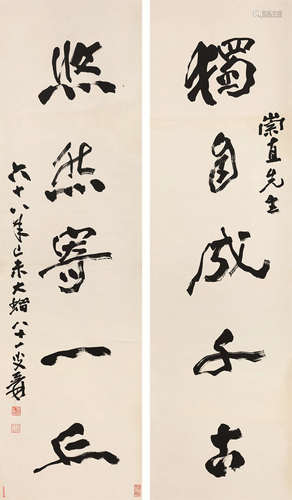 獨自成千古
崇直先生
悠然寄一丘
六十八年己未大蜡八十一叟爰